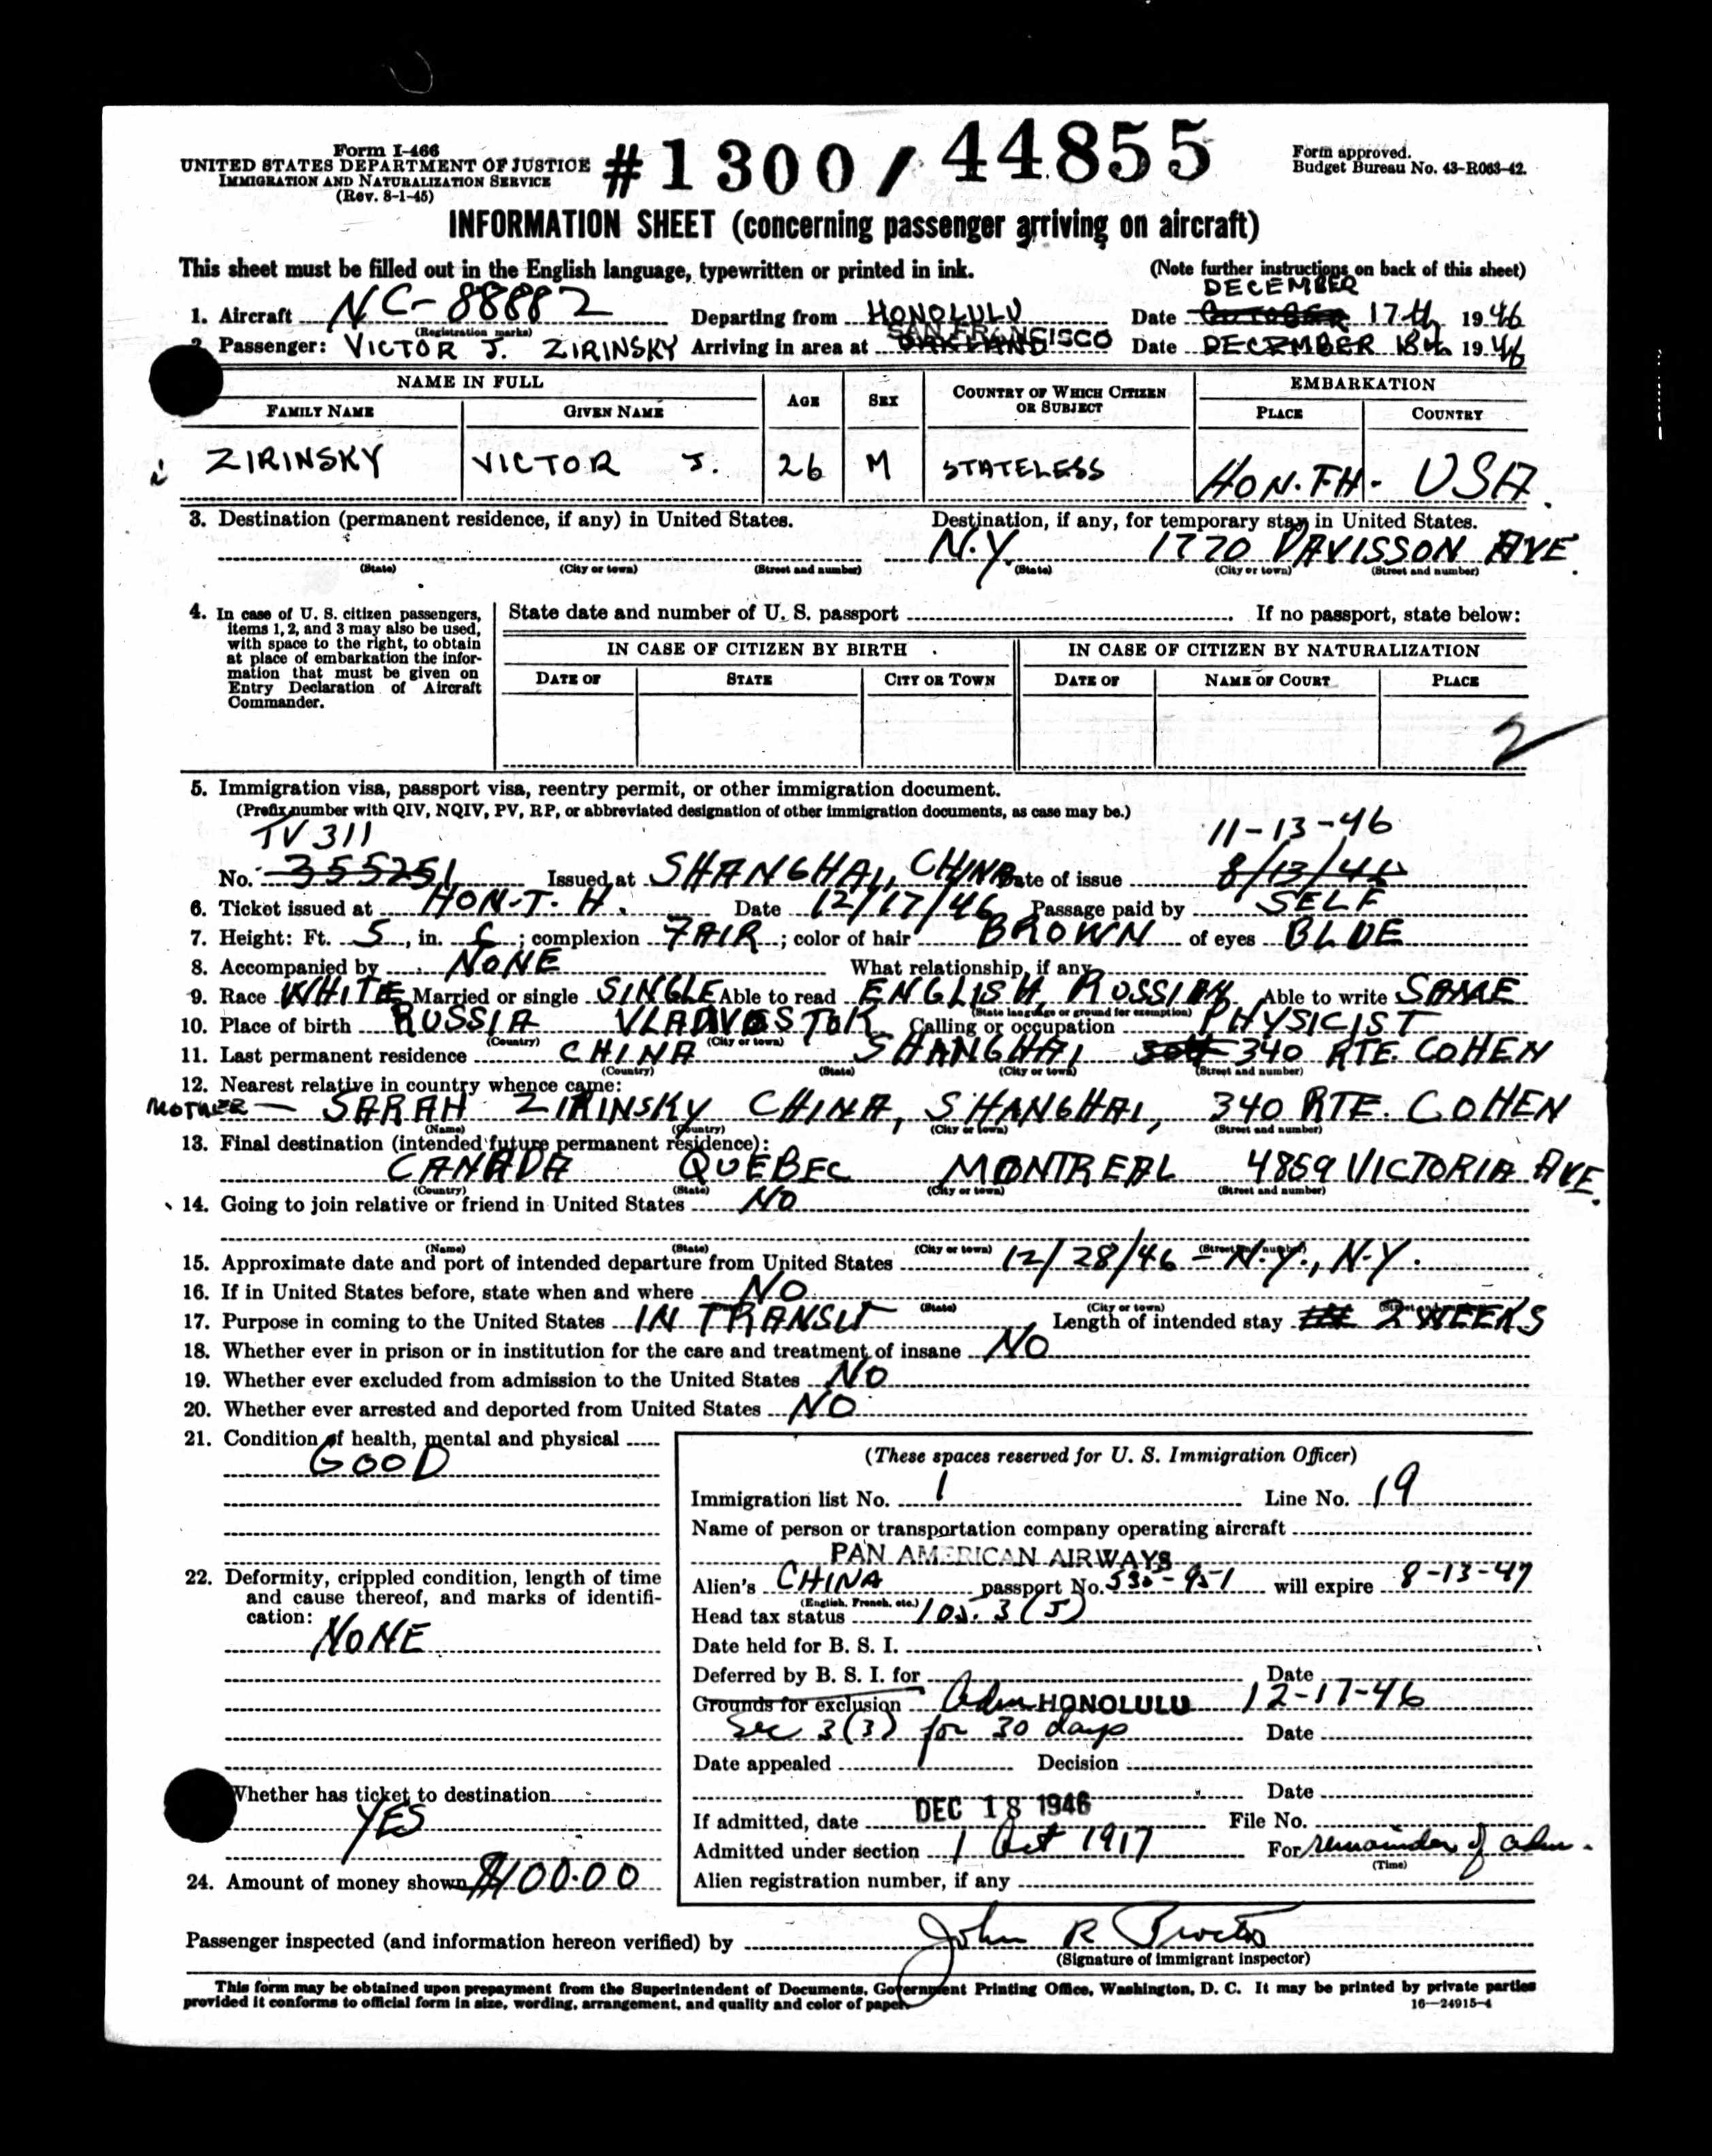 Form I-466
UNITED STATES DEPARTMENT OF JUSTICE
IMMIGRATION AND NATURALIZATION SERVICE
(Rev. 8-1-45)
#1300/44855
Form approved.
Budget Bureau No. 43-R063-42.
INFORMATION SHEET (concerning passenger arriving on aircraft)
This sheet must be filled out in the English language, typewritten or printed in ink. (Note further instructions on back of this sheet)
DECEMBER
1. Aircraft NC-88882 Departing from HONOLULU Date OCTOBER 17th 1946
(Registration marks) SAN FRANCISCO
2. Passenger: VICTOR J. ZIRINSKY Arriving in area at OAKLAND Date DECEMBER 18th 1946
NAME IN FULL AGE SEX COUNTRY OF WHICH CITIZEN OR SUBJECT EMBARKATION
FAMILY NAME GIVEN NAME PLACE COUNTRY
ZIRINSKY VICTOR J. 26 M STATELESS HON. TH- USA.
3. Destination (permanent residence, if any) in United States. Destination, if any, for temporary stay in United States.
N.Y 1770 DAVISSON AVE.
(State) (City or town) (Street and number) (State) (City or town) (Street and number)
4. In case of U. S. citizen passengers, items 1, 2, and 3 may also be used, with space to the right, to obtain at place of embarkation the information that must be given on Entry Declaration of Aircraft Commander.
State date and number of U. S. passport If no passport, state below:
IN CASE OF CITIZEN BY BIRTH IN CASE OF CITIZEN BY NATURALIZATION
DATE OF STATE CITY OR TOWN DATE OF NAME OF COURT PLACE
2
5. Immigration visa, passport visa, reentry permit, or other immigration document.
(Prefix number with QIV, NQIV, PV, RP, or abbreviated designation of other immigration documents, as case may be.)
TV 311 11-13-46
No. 355251 Issued at SHANGHAI, CHINA Date of issue 8/13/46
6. Ticket issued at HON. T. H. Date 12/17/46 Passage paid by SELF
7. Height: Ft. 5, in. 6; complexion FAIR; color of hair BROWN of eyes BLUE
8. Accompanied by NONE What relationship, if any
9. Race WHITE Married or single SINGLE Able to read ENGLISH, RUSSIAN Able to write SAME
(State language or ground for exemption)
10. Place of birth RUSSIA VLADIVOSTOK Calling or occupation PHYSICIST
(Country) (City or town)
11. Last permanent residence CHINA SHANGHAI 340 RTE. COHEN
(Country) (State) (City or town) (Street and number)
12. Nearest relative in country whence came:
MOTHER - SARAH ZIRINSKY CHINA, SHANGHAI, 340 RTE. COHEN
(Name) (Country) (City or town) (Street and number)
13. Final destination (intended future permanent residence):
CANADA QUEBEC MONTREAL 4859 VICTORIA AVE.
(Country) (State) (City or town) (Street and number)
14. Going to join relative or friend in United States NO
(Name) (State) (City or town) (Street and number)
15. Approximate date and port of intended departure from United States 12/28/46 - N.Y., N.Y.
16. If in United States before, state when and where NO
(State) (City or town)
17. Purpose in coming to the United States IN TRANSIT Length of intended stay 2 WEEKS
18. Whether ever in prison or in institution for the care and treatment of insane NO
19. Whether ever excluded from admission to the United States NO
20. Whether ever arrested and deported from United States NO
21. Condition of health, mental and physical
GOOD
22. Deformity, crippled condition, length of time and cause thereof, and marks of identification:
NONE
Whether has ticket to destination
YES
24. Amount of money shown $100.00
(These spaces reserved for U. S. Immigration Officer)
Immigration list No. 1 Line No. 19
Name of person or transportation company operating aircraft
PAN AMERICAN AIRWAYS
Alien's CHINA passport No. will expire 8-13-47
(English, French, etc.)
Head tax status 105.3(J)
Date held for B. S. I.
Deferred by B. S. I. for Date
Grounds for exclusion Adm HONOLULU 12-17-46
Sec 3(3) for 30 days Date
Date appealed Decision
Date
If admitted, date DEC 18 1946 File No.
Admitted under section 1 Act 1917 For remainder of adm.
(Time)
Alien registration number, if any
Passenger inspected (and information hereon verified) by John R Proctor
(Signature of immigrant inspector)
This form may be obtained upon prepayment from the Superintendent of Documents, Government Printing Office, Washington, D. C. It may be printed by private parties
provided it conforms to official form in size, wording, arrangement, and quality and color of paper.
16—24915-4